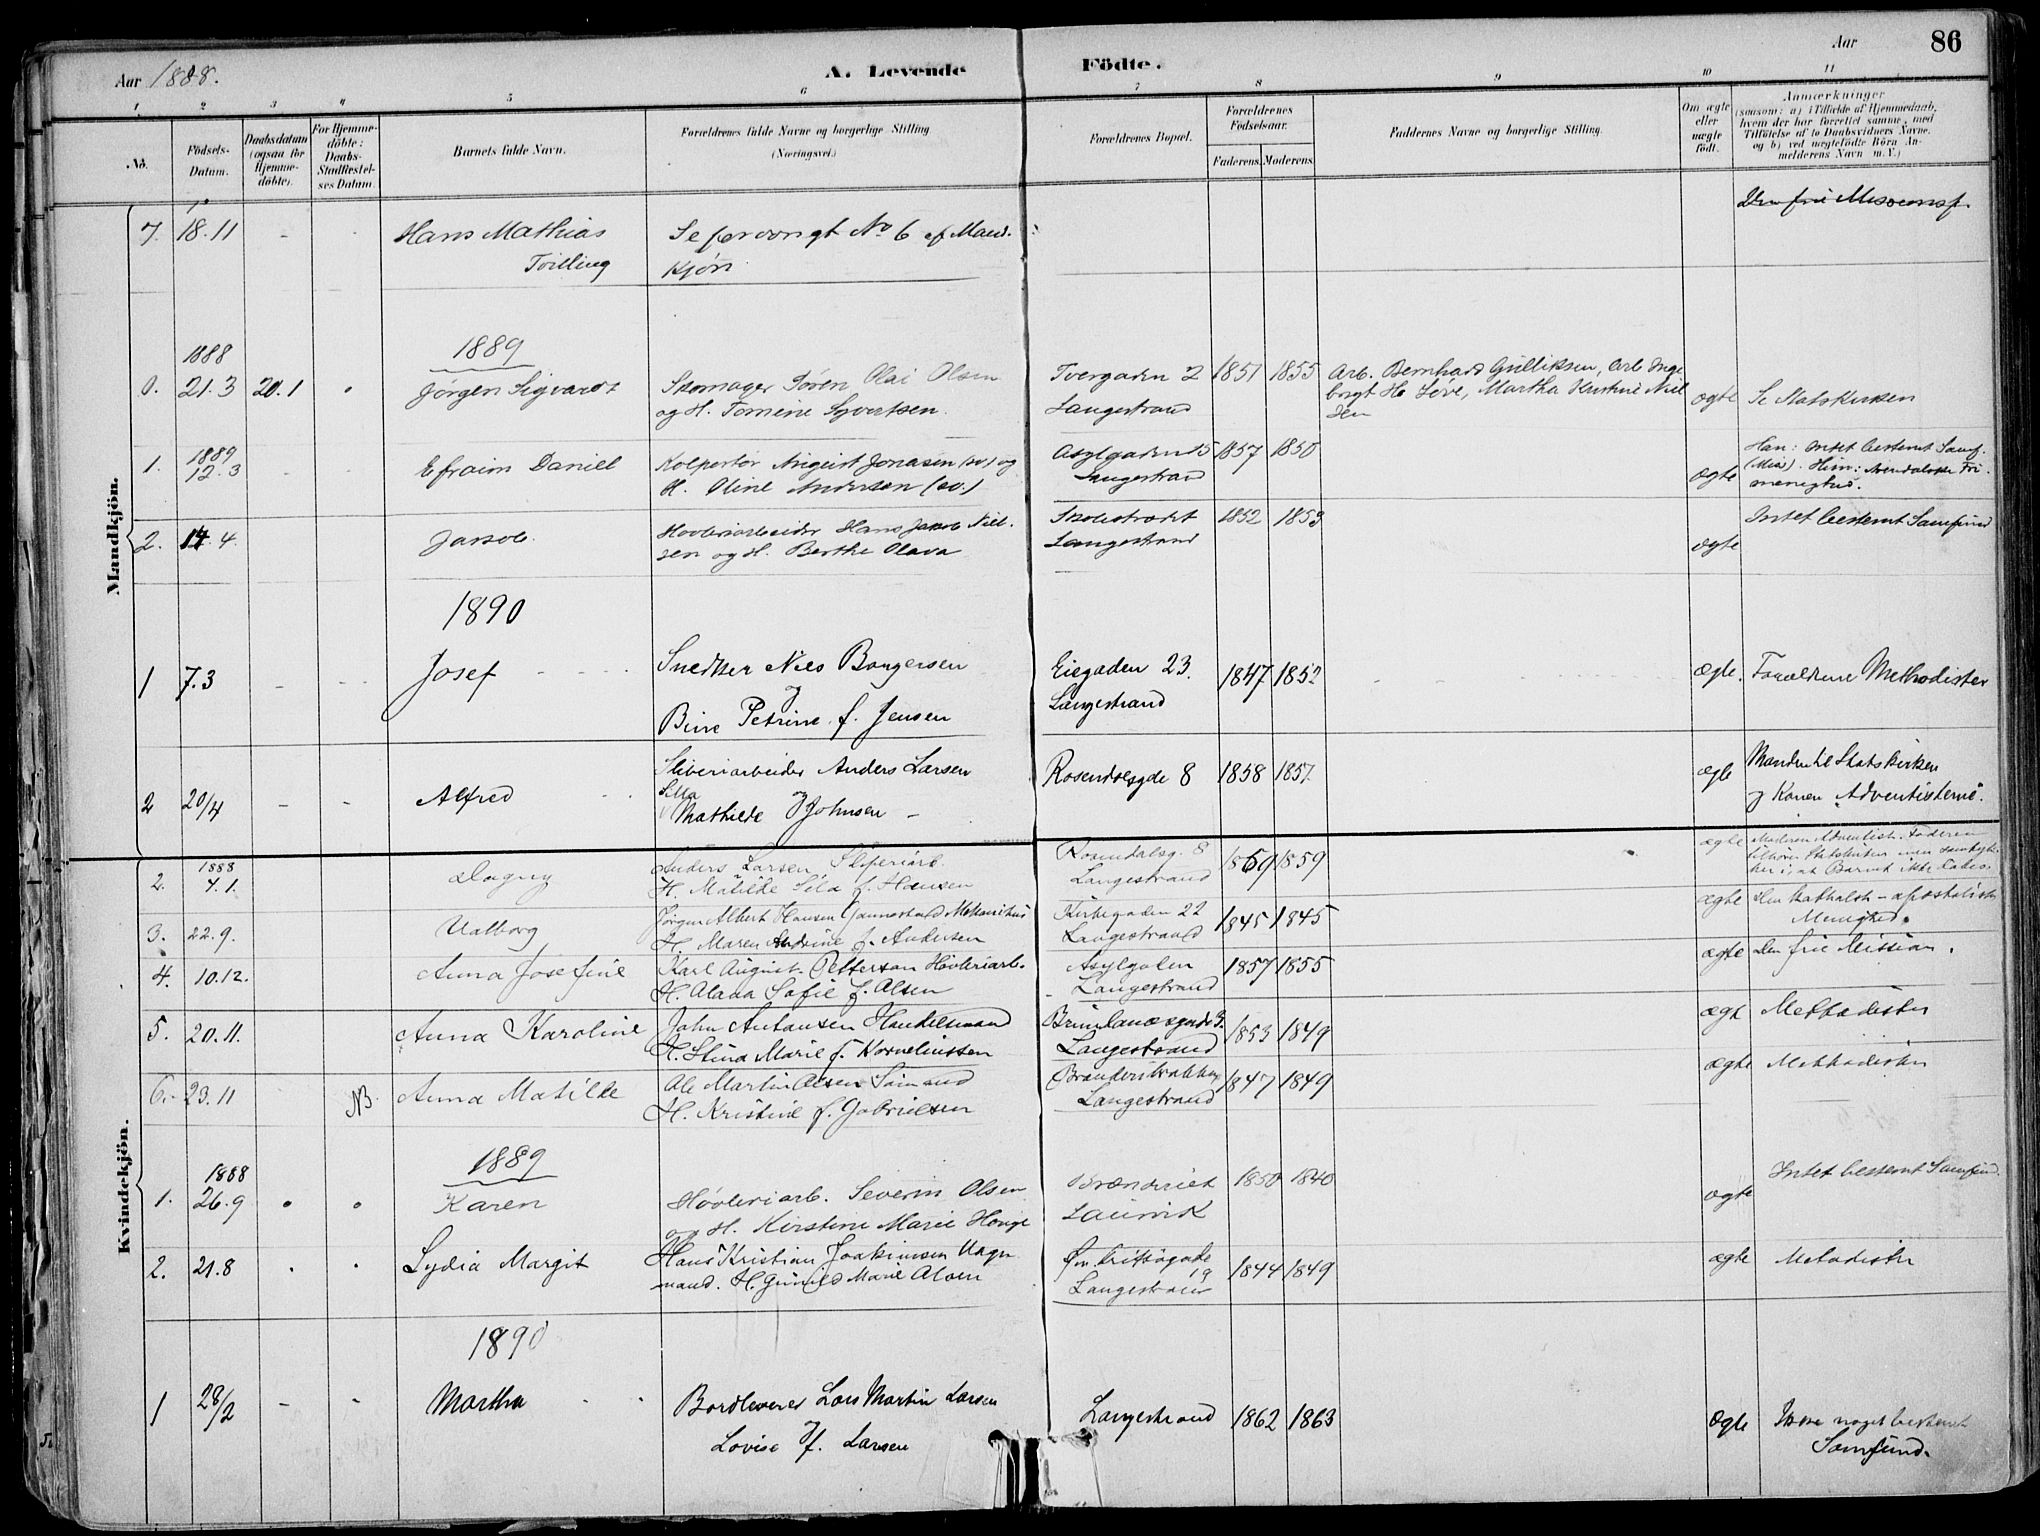 Aar 1888.
A. Levende Födte.
Aar
86
1 2 3 4 5 6 7 8 9 10 11
No.
Födsels-Datum.
Daabsdatum (ogsaa for Hjemmedöbte).
For Hjemmedöbte: Daabs-Stadfæstelses Datum.
Barnets fulde Navn.
Forældrenes fulde Navne og borgerlige Stilling (Næringsvei.)
Forældrenes Bopæl.
Forældrenes Födselsaar.
Faderens. Moderens.
Faddernes Navne og borgerlige Stilling.
Om ægte eller uægte födt.
Anmærkninger
(saasom: a) i Tilfælde af Hjemmedaab, hvem der har forrettet samme, med Tilföielse af to Daabsvidners Navne, og b) ved uægtefödte Börn Anmelderens Navn m. V.)
Mandkjön.
Den frie Missionsf.
7. 18.11 - - Hans Mathias Se forøvrigt No 6 af Mand-
Tvilling kjøn
1889
1888
0. 21.3 20.1 Jørgen Sigvardt Skomager Søren Olai Olsen Tvergaden 2 1851 1855 Arb. Bernhard Gulliksen, Arb. Inge
og H. Tomine Syvertsen. Langestrand borgt H. Løve, Martha Kristine Niel ægte Se Statskirken
sen
1889
1. 12.3 Efraim Daniel Kolportør August Jonasen (sv.) og Asylgaden 15 1857 1850 Han: intet bestemt Samf.
H. Oline Andersen (sv.) Langestrand ægte (Mis). Hun: Arendalske Fri-
menighed.
2. 14.4. Jakob. Høvleriarbeider Hans Jakob Niel- Skolestrædet 1852 1853 Intet bestemt Samfund
sen og H. Berthe Olava Langestrand ægte
1890
1 7.3 - - Josef Snedker Niels Borgersen Eiegaden 23. 1847 1852 ægte. Forældrene Methodister
og
Bine Petrine f. Jensen Langestrand
2 20/4 - - Alfred Sliberiarbeider Anders Larsen Rosendalsgde 8 1858 1857 ægte Manden til Statskirken
Sella
Mathilde f Johnsen - og Konen Adventisterne.
Kvindekjön.
1888
2. 4.1. Dagny Anders Larsen, Sliperiarb. Rosendalsg. 8 1859 1859 ægte Moderen Adventist. Faderen
H. Matilde Sila f. Hansen Langestrand tilhører Statskirken men samtyk-
ker i, at Barnet ikke døbes.
3. 22.9. Valborg Jørgen Albert Hansen Gannestad Mekanikus Kirkegaden 22 1845 1845 ægte Den katholsk-apostoliske
H. Maren Andrine f. Andersen Langestrand Menighed.
4. 10.12. Anna Josefine Karl August Petterson Høvleriarb. Asylgaden 1857 1855 ægte Den frie Mission.
H. Alava Sofie f. Olsen Langestrand
5. 20.11. Anna Karoline John Antonsen Handelsmand 1853 1849 ægt Methodister
H. Stina Marie f. Korneliussen Langestrand
6. 23.11 NB. Anna Matilde Ole Martin Olsen Sømand Branderibakken 1847 1849 ægte Methodister
H. Kristine f. Gabrielsen Langestrand
1889
1888
1. 26.9 Karen Høvleriarb. Severin Olsen Brænderiet 1850 1840 ægte Intet bestemt Samfund
og H. Kirstine Marie Hauge Laurvik
2. 21.8 Lydia Margit Hans Kristian Joakimsen Vogn- 1844 1849 ægte Metodister
mand. H. Gunild Marie Olsen 19
Langestrand
1890
1 28/2 - - Martha Bordleverer Lars Martin Larsen Langestrand 1862 1863 ægte Ikke noget bestemt
Lovise f. Larsen Samfund.